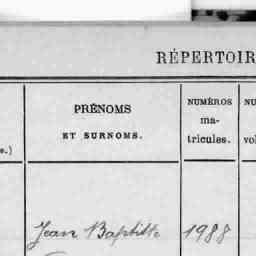 RÉPERTOIR
PRÉNOMS
ET SURNOMS.
NUMÉROS
ma-
tricules.
NU
vol
s.)
Jean Baptiste 1988